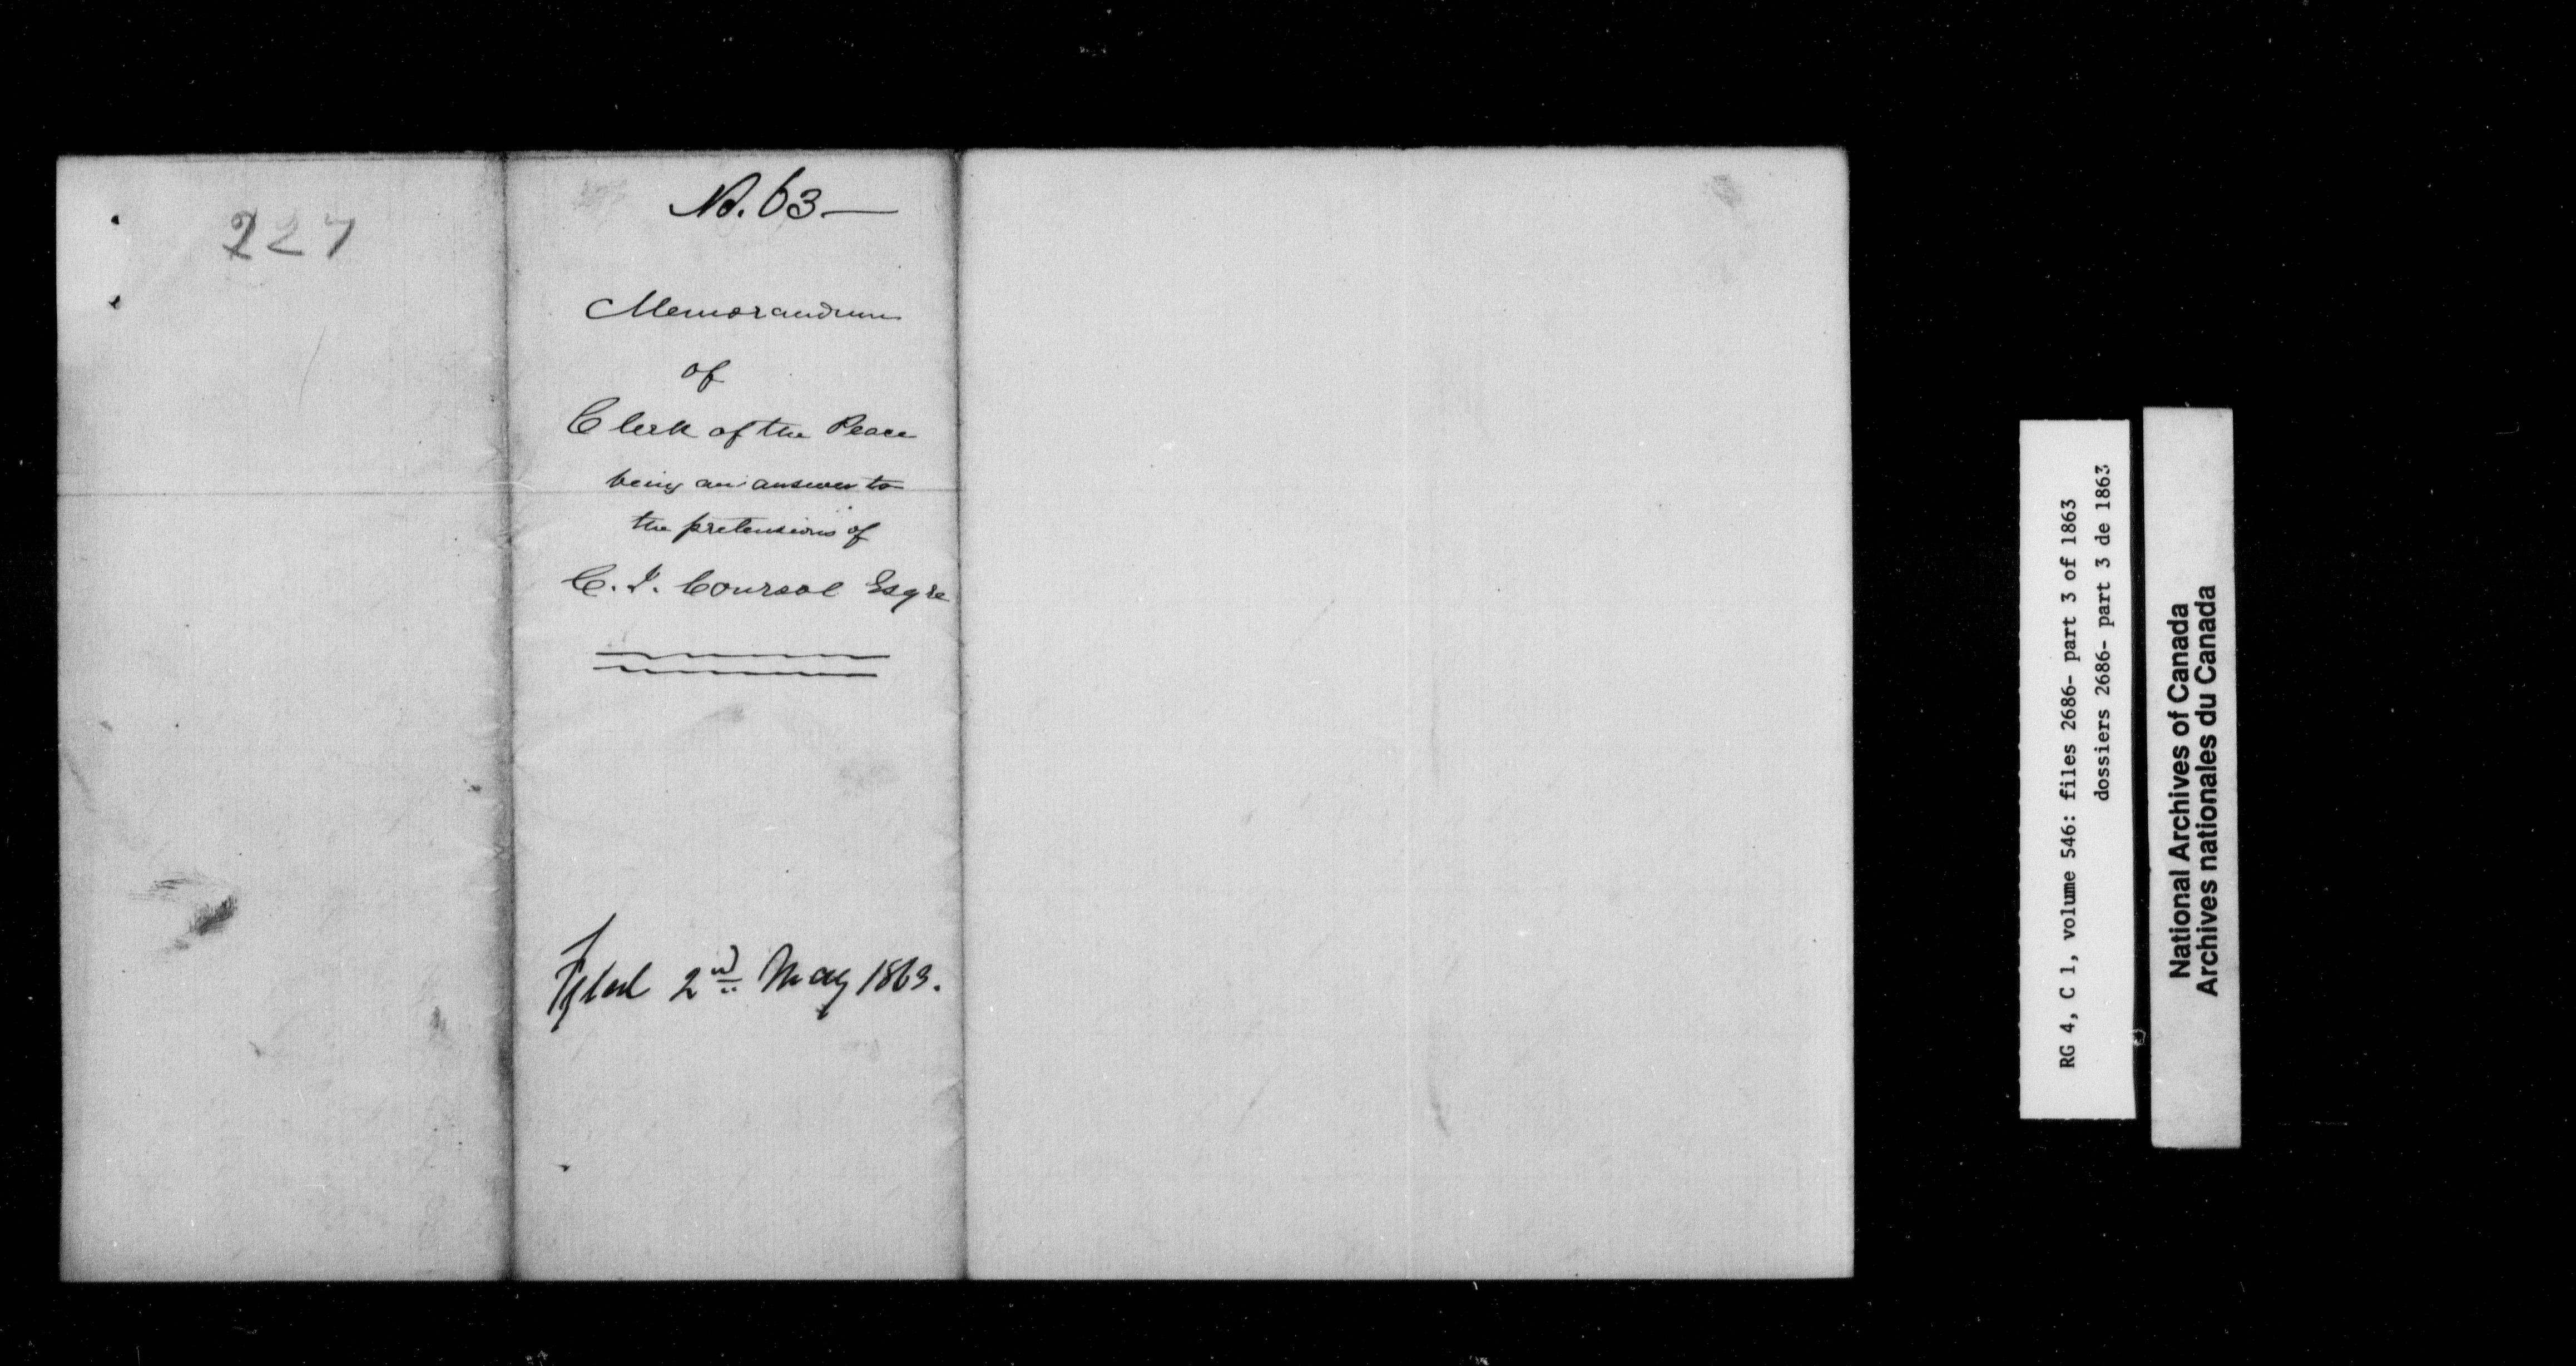 227
No. 63—
Memorandum
of
Clerk of the Peace
being an answer to
the pretensions of
C. J. Coursol Esqre
Fyled 2nd May 1863.
RG 4, C 1, volume 546: files 2686- part 3 of 1863
dossiers 2686- part 3 de 1863
National Archives of Canada
Archives nationales du Canada